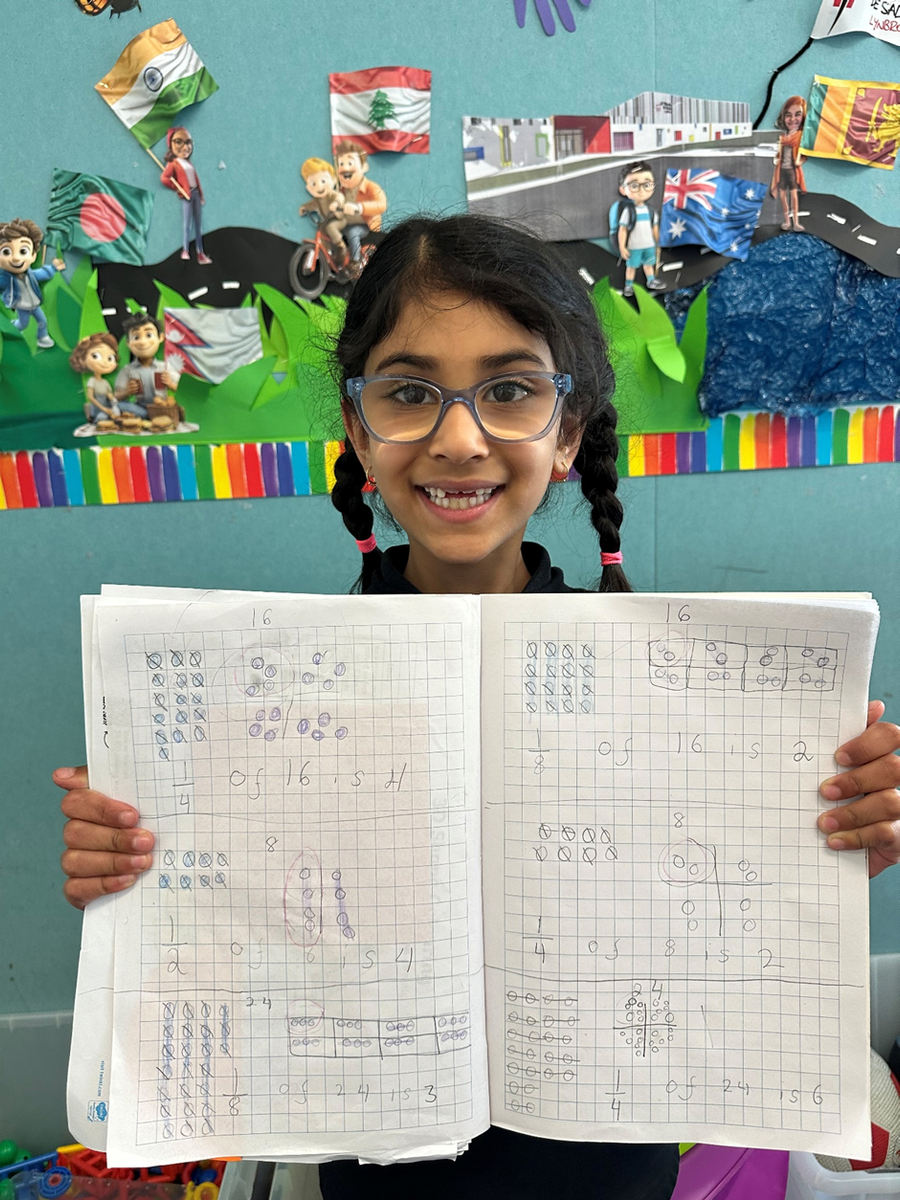 DE SAL
LYNBRO
16
1/4 of 16 is 4
8
1/2 of 8 is 4
24
1/8 of 24 is 3
16
1/8 of 16 is 2
8
1/4 of 8 is 2
24
1/4 of 24 is 6